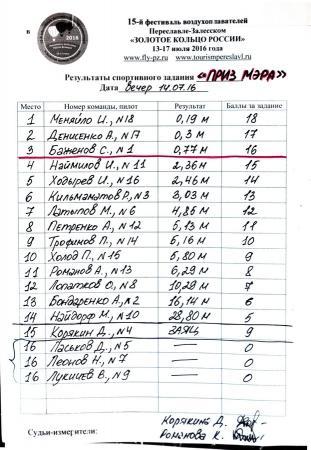 в
2016
15-й фестиваль воздухоплавателей
Переславле-Залесском
«ЗОЛОТОЕ КОЛЬЦО РОССИИ»
13-17 июля 2016 года
www.fly-pz.ru www.tourismpereslavl.ru
Результаты спортивного задания «ПРИЗ МЭРА»
Дата вечер 14.07.16
Место Номер команды, пилот Результат Баллы за задание
1 Меняйло И., N18 0,19 м 18
2 Денисенко А., N17 0,3 м 17
3 Баженов С., N1 0,77 м 16
4 Наймилов И., N 11 2,36 м 15
5 Ходырев И., N16 2,46 м 14
6 Кильматов Р., N3 3,03 м 13
7 Латыпов М., N6 4,86 м 12
8 Петренко А., N12 5,13 м 11
9 Трофимов П., N14 5,16 м 10
10 Холод П., N15 5,80 м 9
11 Романов А., N13 6,29 м 8
12 Лопатков О., N8 10,29 м 7
13 Бондаренко А., N2 16,14 м 6
14 Найдорф М., N10 28,80 м 5
15 Корякин Д., N4 ЗАЯЦ 9
16 Ласьков Д., N5 —
16 Леонов Н., N7 —
16 Лукичев В., N9 —
Корякина Д.
Романова К.
Судьи-измерители: